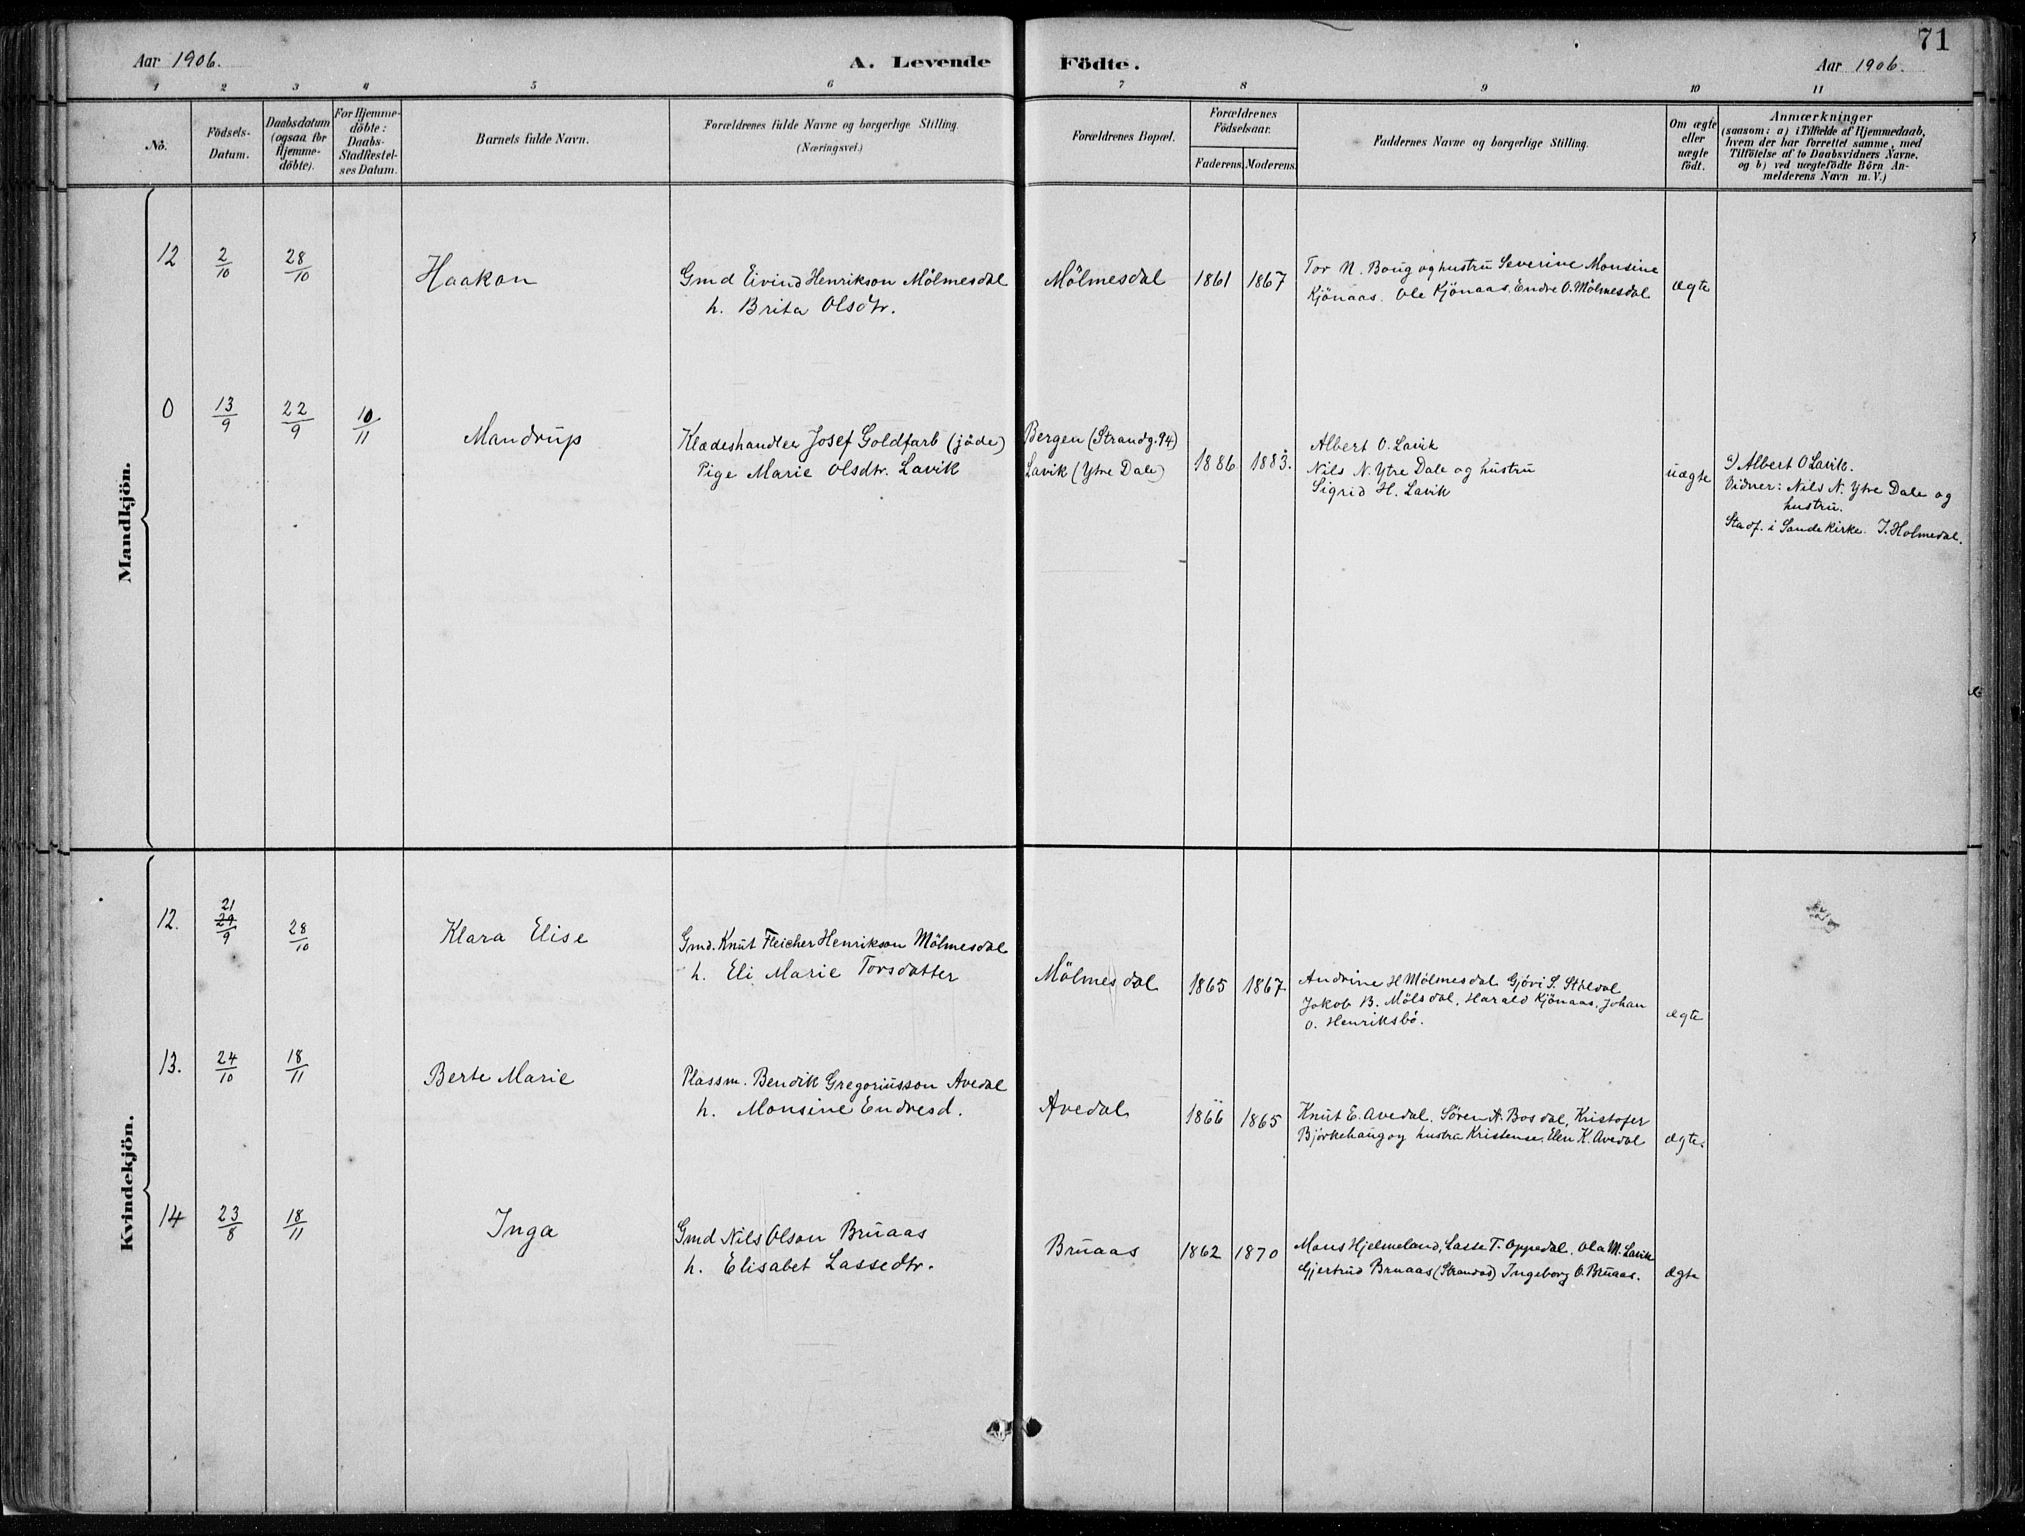 71
Aar 1906.
A. Levende Födte.
Aar 1906.
1 2 3 4 5 6 7 8 9 10 11
No.
Födsels-
Datum.
Daabsdatum
(ogsaa for
Hjemme-
döbte).
For Hjemme-
döbte:
Daabs-
Stadfæstel-
ses Datum.
Barnets fulde Navn.
Forældrenes fulde Navne og borgerlige Stilling.
(Næringsvei.)
Forældrenes Bopæl.
Forældrenes
Födselsaar.
Faderens. Moderens.
Faddernes Navne og borgerlige Stilling.
Om ægte
eller
uægte
födt.
Anmærkninger
(saasom: a) i Tilfælde af Hjemmedaab,
hvem der har forrettet samme, med
Tilföielse af to Daabsvidners Navne,
og b) ved uægtefödte Börn An-
melderens Navn m. V.)
Mandkjön.
12 2/10 28/10 Haakon
Gmd Eivind Henrikson Mölmesdal
h. Brita Olsdtr.
Mölmesdal 1861 1867
Tor N. Boug og hustru Severine Monsine
Kjönaas. Ole Kjönaas. Endre O. Mölmesdal
ægte
0 13/9 22/9 10/11 Mandrup
Klædeshandler Josef Goldfarb (jöde)
Pige Marie Olsdtr. Lavik
Bergen (Strandg. 94)
Lavik (Ytre Dale)
1886 1883.
Albert O. Lavik
Nils N. Ytre Dale og hustru
Sigrid H. Lavik
uægte
a) Albert O Lavik.
Vidner: Nils N. Ytre Dale og
hustru.
Stadf. i Sande Kirke. J. Holmedal.
Kvindekjön.
12. 21 29/9 28/10 Klara Elise
Gmd. Knut Fleicher Henrikson Mölmesdal
h. Eli Marie Torsdatter
Mölmesdal 1865 1867
Andrine H Mölmesdal Gjöri S. Stöldal
Jakob B. Mölsdal, Harald Kjönaas, Johan
O. Henriksbö.
ægte
13. 24/10 18/11 Berte Marie
Plassm. Bendik Gregoriusson Avedal
h. Monsine Endresd.
Avedal 1866 1865
Knut E. Avedal. Sören A. Bosdal, Kristofer
Björkehaug og hustru Kristense, Elen K. Avedal
ægte.
14 23/8 18/11 Inga
Gmd Nils Olson Bruaas
h. Elisabet Lassedtr.
Bruaas 1862 1870
Mons Hjelmeland, Lasse T. Oppedal, Ola M. Lavik
Gjertrud Bruaas (Strandos) Ingeborg O. Bruaas.
ægte